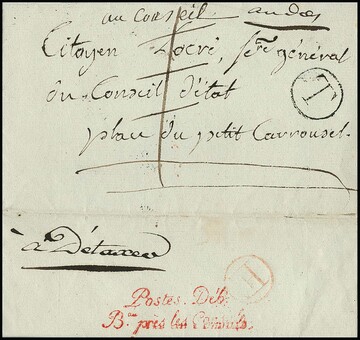 au Conseil
Citoyen Locré, Sere général
du Conseil d'état
place du petit Carrousel.
T
à Détaxer
H
Postes. Déb.
Bau. près les Consuls.